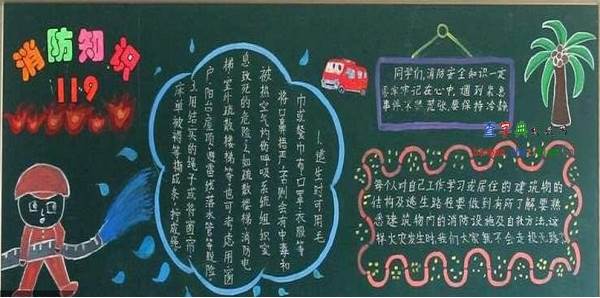 消防知识
119
1.逃生时可用毛
巾或餐巾布、口罩、衣服等
将口鼻捂严,否则会有中毒和
被热空气灼伤呼吸系统组织窒
息致死的危险2.如疏散楼梯、消防电
梯、室外疏散楼梯等。也可考虑用窗
户、阳台、屋顶、避雷线、落水管等脱险
3.用结实的绳子或将窗帘、
床单被褥等撕成条,拧成绳。
同学们,消防安全知识一定
要牢记在心中,遇到紧急
事件不要慌张,要保持冷静
查字典
每个人对自己工作、学习或居住的建筑物的
结构及逃生路径要做到有所了解,要熟
悉建筑物内的消防设施及自救方法,这
样火灾发生时,我们大家就不会走投无路了